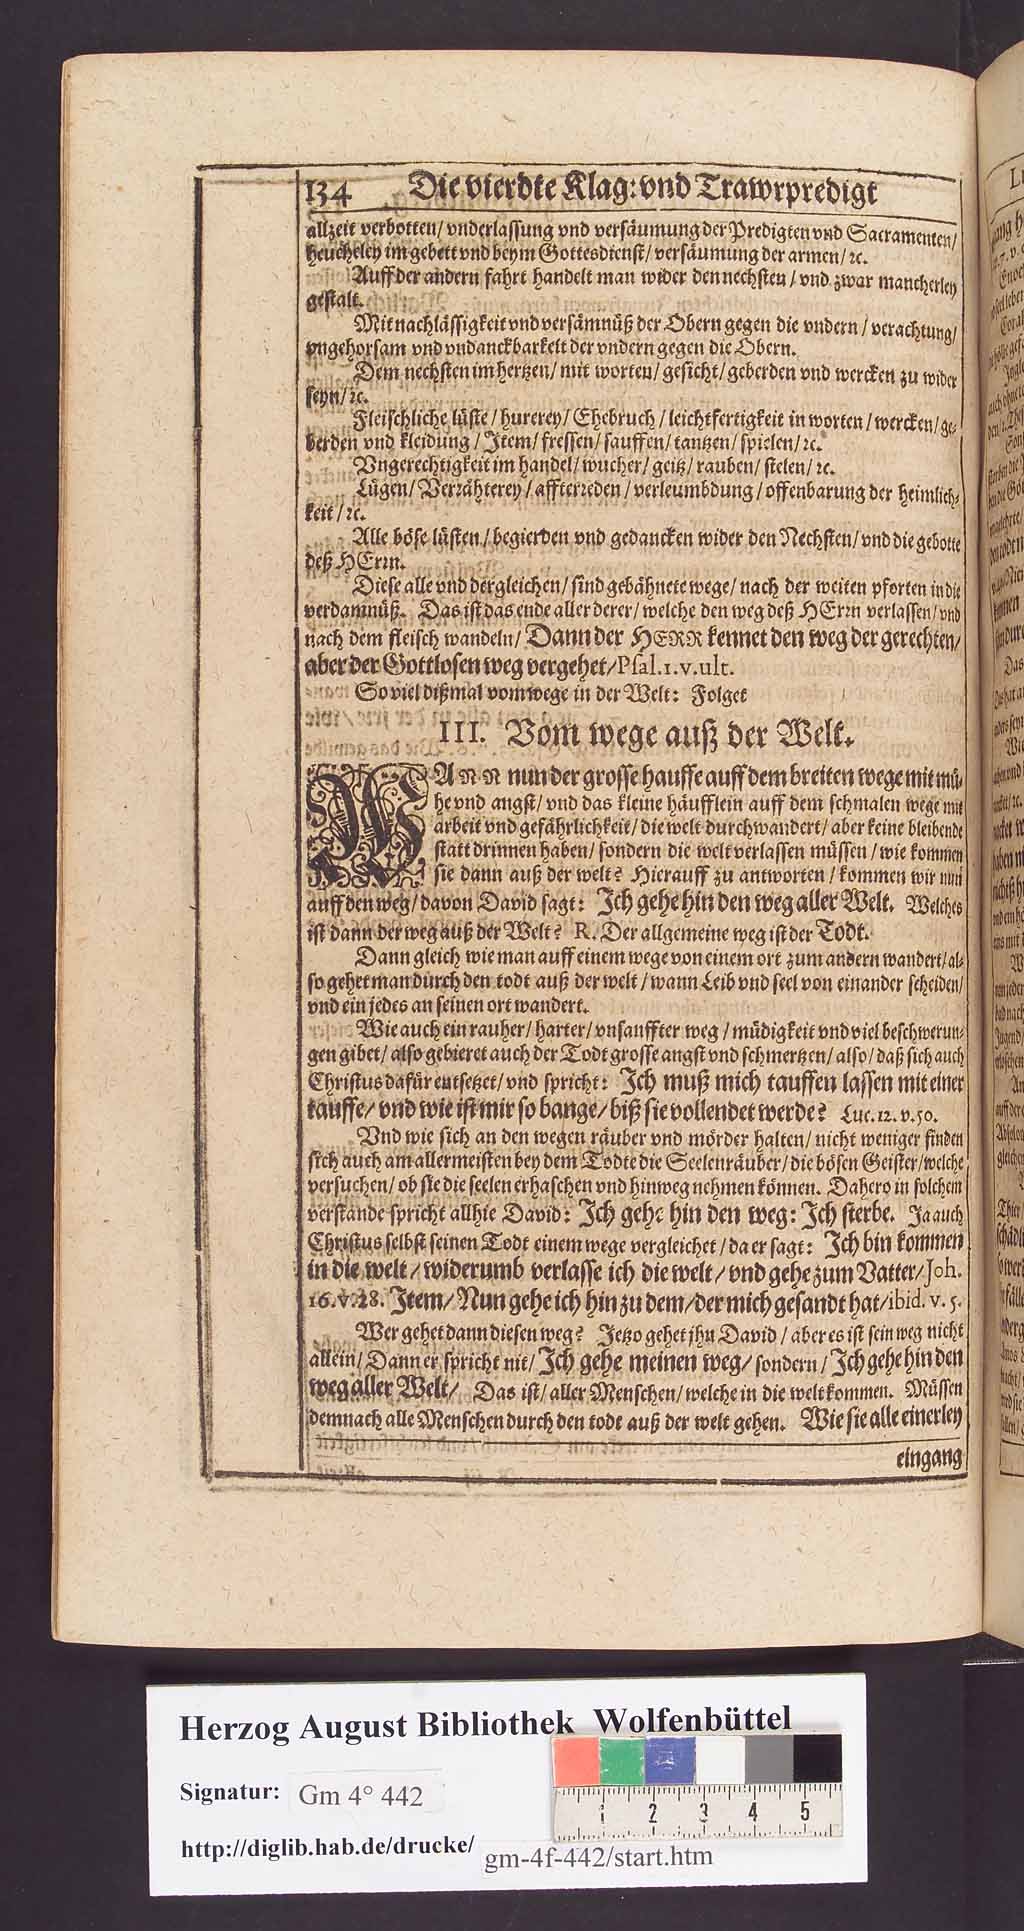 134 Die vierdte Klag: vnd Trawrpredigt
allzeit verbotten/ vnderlassung vnd versäumung der Predigten vnd Sacramenten/
heucheley im gebett vnd beym Gottesdienst/ versäumung der armen/ ꝛc.
Auff der andern fahrt handelt man wider den nechsten/ vnd zwar mancherley
gestalt.
Mit nachlässigkeit vnd versämnüß der Obern gegen die vndern/ verachtung/
vngehorsam vnd vndanckbarkeit der vndern gegen die Obern.
Dem nechsten im hertzen/ mit worten/ gesicht/ geberden vnd wercken zu wider
seyn/ ꝛc.
Fleischliche lüste/ hurerey/ Ehebruch/ leichtfertigkeit in worten/ wercken/ ge-
berden vnd kleidung/ Item/ fressen/ sauffen/ tantzen/ spielen/ ꝛc.
Vngerechtigkeit im handel/ wucher/ geitz/ rauben/ stelen/ ꝛc.
Lügen/ Verrähterey/ affterreden/ verleumbdung/ offenbarung der heimlich-
keit/ ꝛc.
Alle böse lüsten/ begierden vnd gedancken wider den Nechsten/ vnd die gebotte
deß HErrn.
Diese alle vnd dergleichen/ sind gebähnete wege/ nach der weiten pforten in die
verdamnüß. Das ist das ende aller derer/ welche den weg deß HErrn verlassen/ vnd
nach dem fleisch wandeln/ Dann der HERR kennet den weg der gerechten/
aber der Gottlosen weg vergehet/ Psal.1.v.ult.
So viel dißmal vom wege in der Welt: Folget
III. Vom wege auß der Welt.
WAnn nun der grosse hauffe auff dem breiten wege mit mü-
he vnd angst/ vnd das kleine häufflein auff dem schmalen wege mit
arbeit vnd gefährlichkeit/ die welt durchwandert/ aber keine bleibende
statt drinnen haben/ sondern die welt verlassen müssen/ wie kommen
sie dann auß der welt? Hierauff zu antworten/ kommen wir nun
auff den weg/ davon David sagt: Ich gehe hin den weg aller Welt. Welches
ist dann der weg auß der Welt? R. Der allgemeine weg ist der Todt.
Dann gleich wie man auff einem wege von einem ort zum andern wandert/ al-
so gehet man durch den todt auß der welt/ wann Leib vnd seel von einander scheiden/
vnd ein jedes an seinen ort wandert.
Wie auch ein rauher/ harter/ vnsauffter weg/ müdigkeit vnd viel beschwerun-
gen gibet/ also gebieret auch der Todt grosse angst vnd schmertzen/ also/ daß sich auch
Christus dafür entsetzet/ vnd spricht: Ich muß mich tauffen lassen mit einer
tauffe/ vnd wie ist mir so bange/ biß sie vollendet werde? Luc. 12. v. 50.
Vnd wie sich an den wegen räuber vnd mörder halten/ nicht weniger finden
sich auch am allermeisten bey dem Todte die Seelenräuber/ die bösen Geister/ welche
versuchen/ ob sie die seelen erhaschen vnd hinweg nehmen können. Dahero in solchem
verstande spricht allhie David: Ich gehe hin den weg: Ich sterbe. Ja auch
Christus selbst seinen Todt einem wege vergleichet/ da er sagt: Ich bin kommen
in die welt/ widerumb verlasse ich die welt/ vnd gehe zum Vatter/ Joh.
16.v.28. Item/ Nun gehe ich hin zu dem/ der mich gesandt hat/ ibid. v. 5.
Wer gehet dann diesen weg? Jetzo gehet jhn David/ aber es ist sein weg nicht
allein/ Dann er spricht nit/ Ich gehe meinen weg/ sondern/ Ich gehe hin den
weg aller Welt/ Das ist/ aller Menschen/ welche in die welt kommen. Müssen
demnach alle Menschen durch den todt auß der welt gehen. Wie sie alle einerley
eingang
Herzog August Bibliothek Wolfenbüttel
Signatur: Gm 4° 442
http://diglib.hab.de/drucke/ gm-4f-442/start.htm
1 2 3 4 5